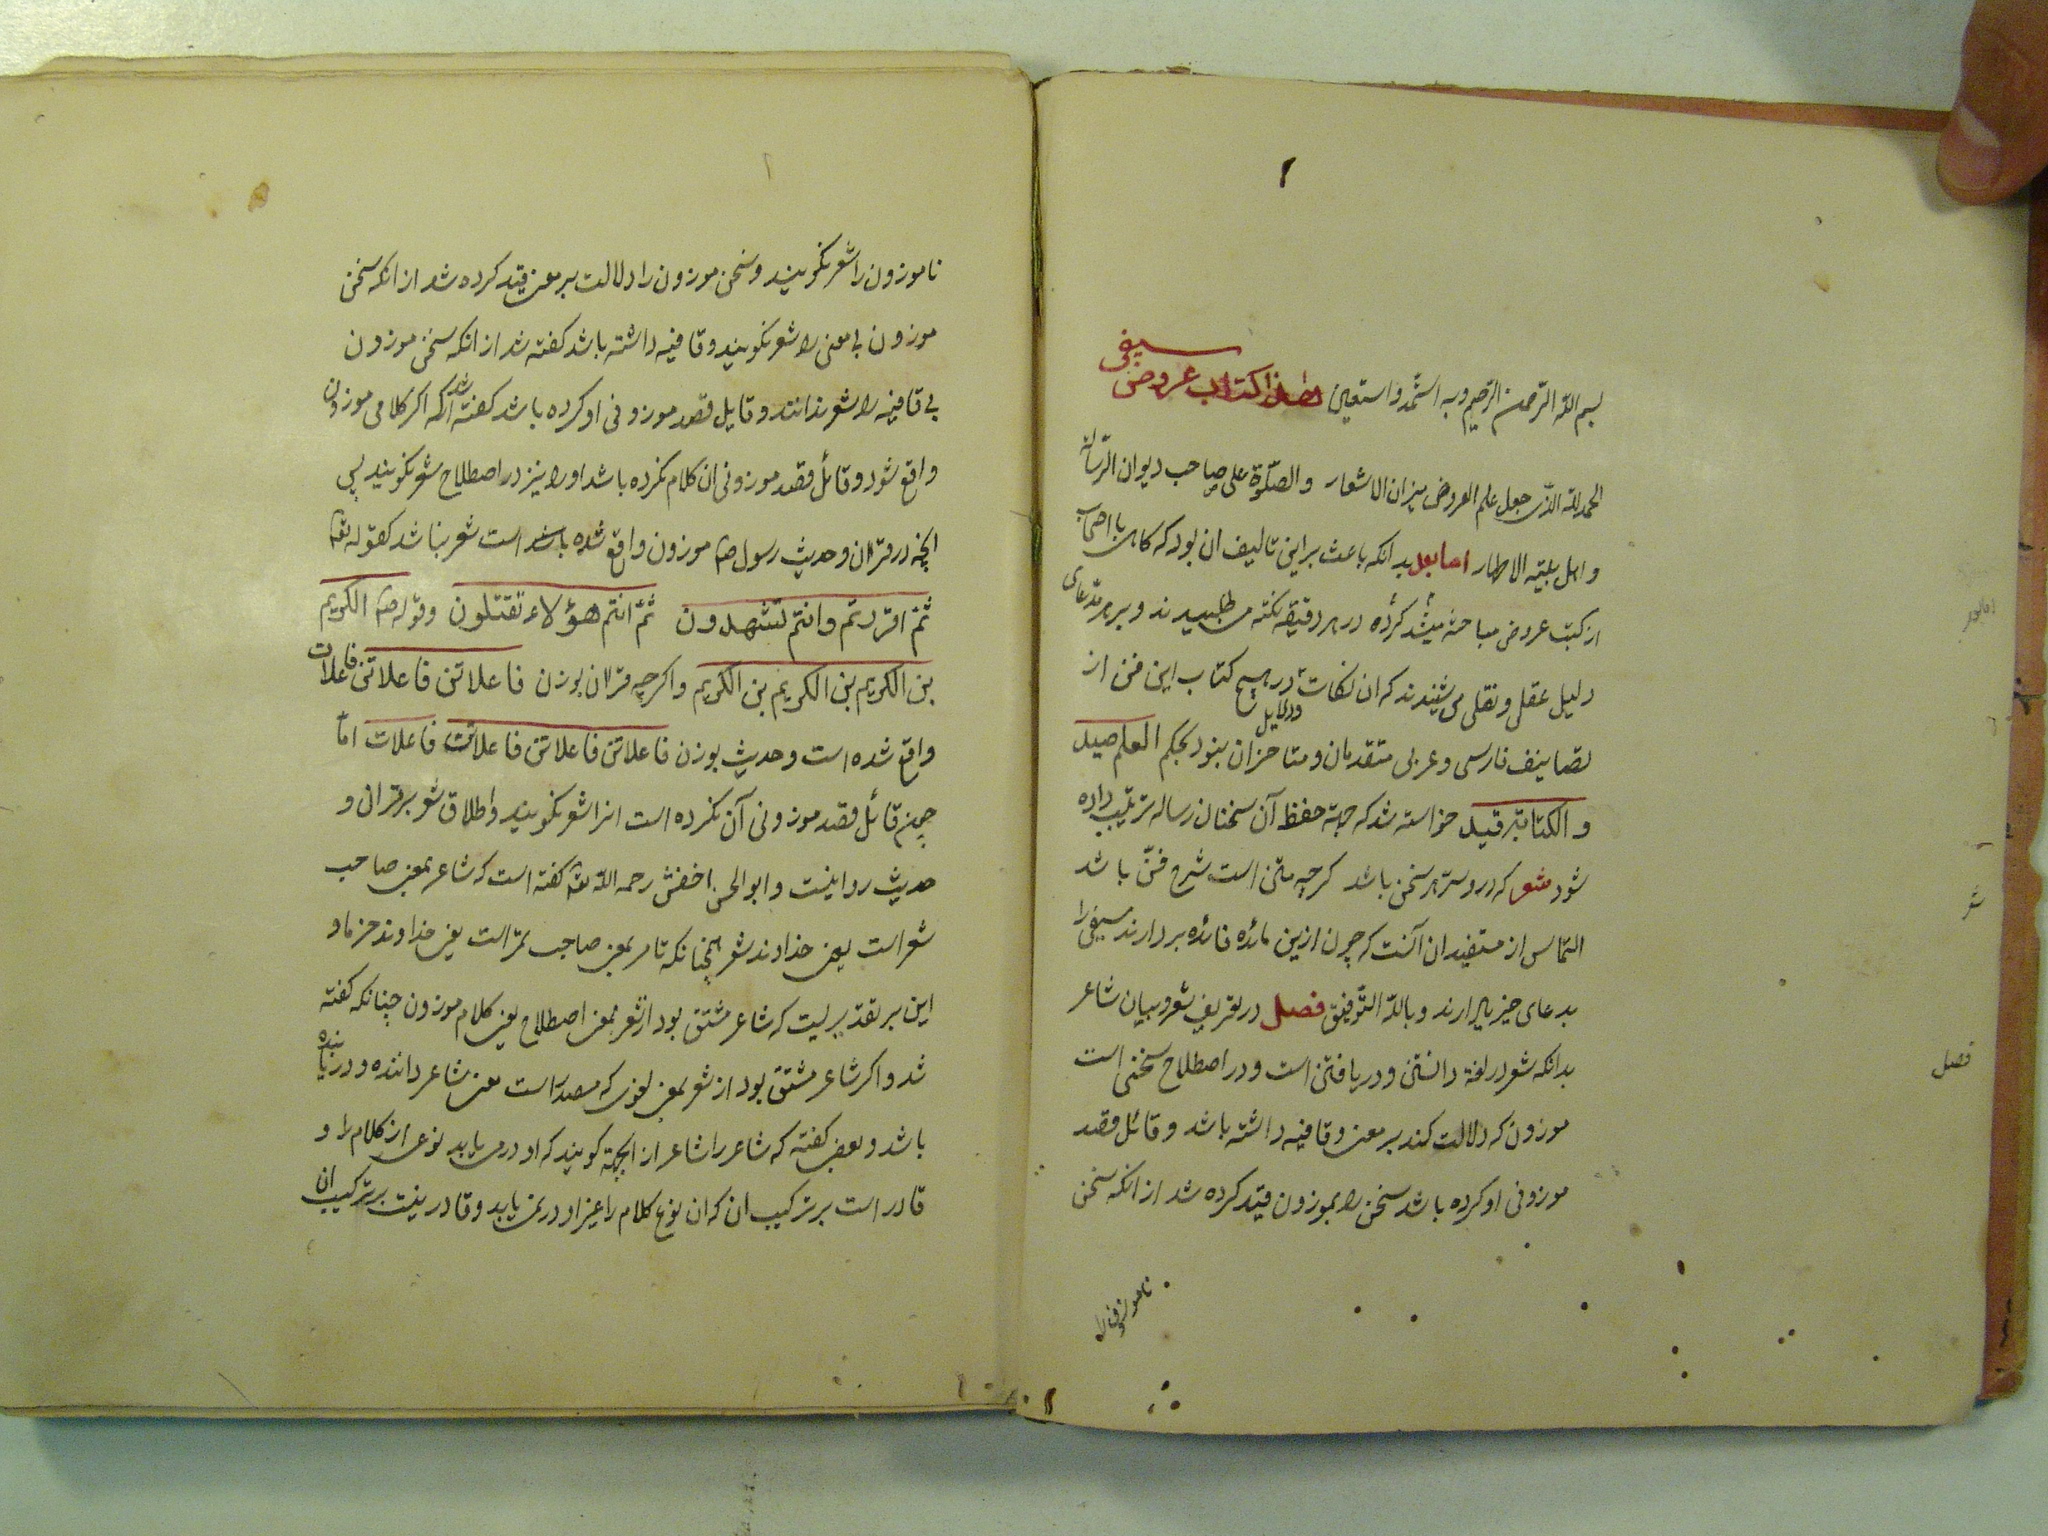 ۱
بسم الله الرّحمن الرّحیم و به استمد و استعین هذا کتاب عروض سیفی
الحمد لله الذی جعل علم العروض میزان الاشعار و الصلوة علی صاحب دیوان الرسالة
و اهل بیته الاطهار اما بعد بدانکه باعث بر این تالیف ان بود که کاهی با اصحاب
از کتب عروض مباحثه میشد کرده در هر دقیقه نکته می طلبیدند و بر هر مدعای
دلیل عقلی و نقلی می شنیدند که ان نکات و دلایل در هیچ کتاب این فن از
تصانیف فارسی و عربی متقدمان و متاخران نبود بحکم العلم صید
و الکتابة قید خواسته شد که جهة حفظ آن سخنان رساله ترتیب داده
شود شعر که در و ستر هر سخن باشد کرچه متن است شرح فنّ باشد
التماس از مستفیدان آنست که چون ازین مائده فائده بردارند سیفی را
بدعای خیر یاد ارند و بالله التّوفیق فصل در تعریف شعر و بیان شاعر
بدانکه شعر در لغة دانستن و دریافتن است و در اصطلاح سخنی است
موزون که دلالت کند بر معنی و قافیه داشته باشد و قائل قصد
موزونی او کرده باشد سخن را بموزون قید کرده شد از انکه سخن
ناموزون را
اما بعد
شعر
فصل
ناموزون را شعر نکویند و سخن موزون را دلالت بر معنی قید کرده شد از انکه سخن
موزون بی معنی را شعر نکویند و قافیه داشته باشد کفته شد از انکه سخن موزون
بی قافیه را شعر ندانند و قایل قصد موزونی او کرده باشد کفته شد انکه اکر کلامی موزون
واقع شود و قائل قصد موزونی ان کلام نکرده باشد او را نیز در اصطلاح شعر نکویند پس
انچه در قران و حدیث رسول صم موزون واقع شده باشد است شعر نباشد کقوله تعم
ثمّ اقررتم و انتم تشهدون ثمّ انتم هؤلاء تقتلون و قوله صم الکریم
بن الکریم بن الکریم بن الکریم و اکرچه قران بوزن فاعلاتن فاعلاتن فاعلات
واقع شده است و حدیث بوزن فاعلاتن فاعلاتن فاعلاتن فاعلات امّا
چون قائل قصد موزونی آن نکرده است انرا شعر نکویند و اطلاق شعر بر قران و
حدیث روا نیست و ابو الحسن اخفش رحمه الله تعم کفته است که شاعر بمعنی صاحب
شعر است یعنی خداوند شعر همچنانکه تامر بمعنی صاحب تمر است یعنی خداوند خرما و
این بر تقدیریست که شاعر مشتق بود از شعر بمعنی اصطلاح یعنی کلام موزون چنانکه کفته
شد و اکر شاعر مشتق بود از شعر بمعنی لغوی که مصدر است معنی شاعر داننده و دریابنده
باشد و بعضی کفته که شاعر را شاعر از انجهة کویند که او در می یابد نوعی از کلام را و
قادر است بر ترکیب ان که ان نوع کلام را غیر او در نمی یابد و قادر نیست بر ترکیب ان